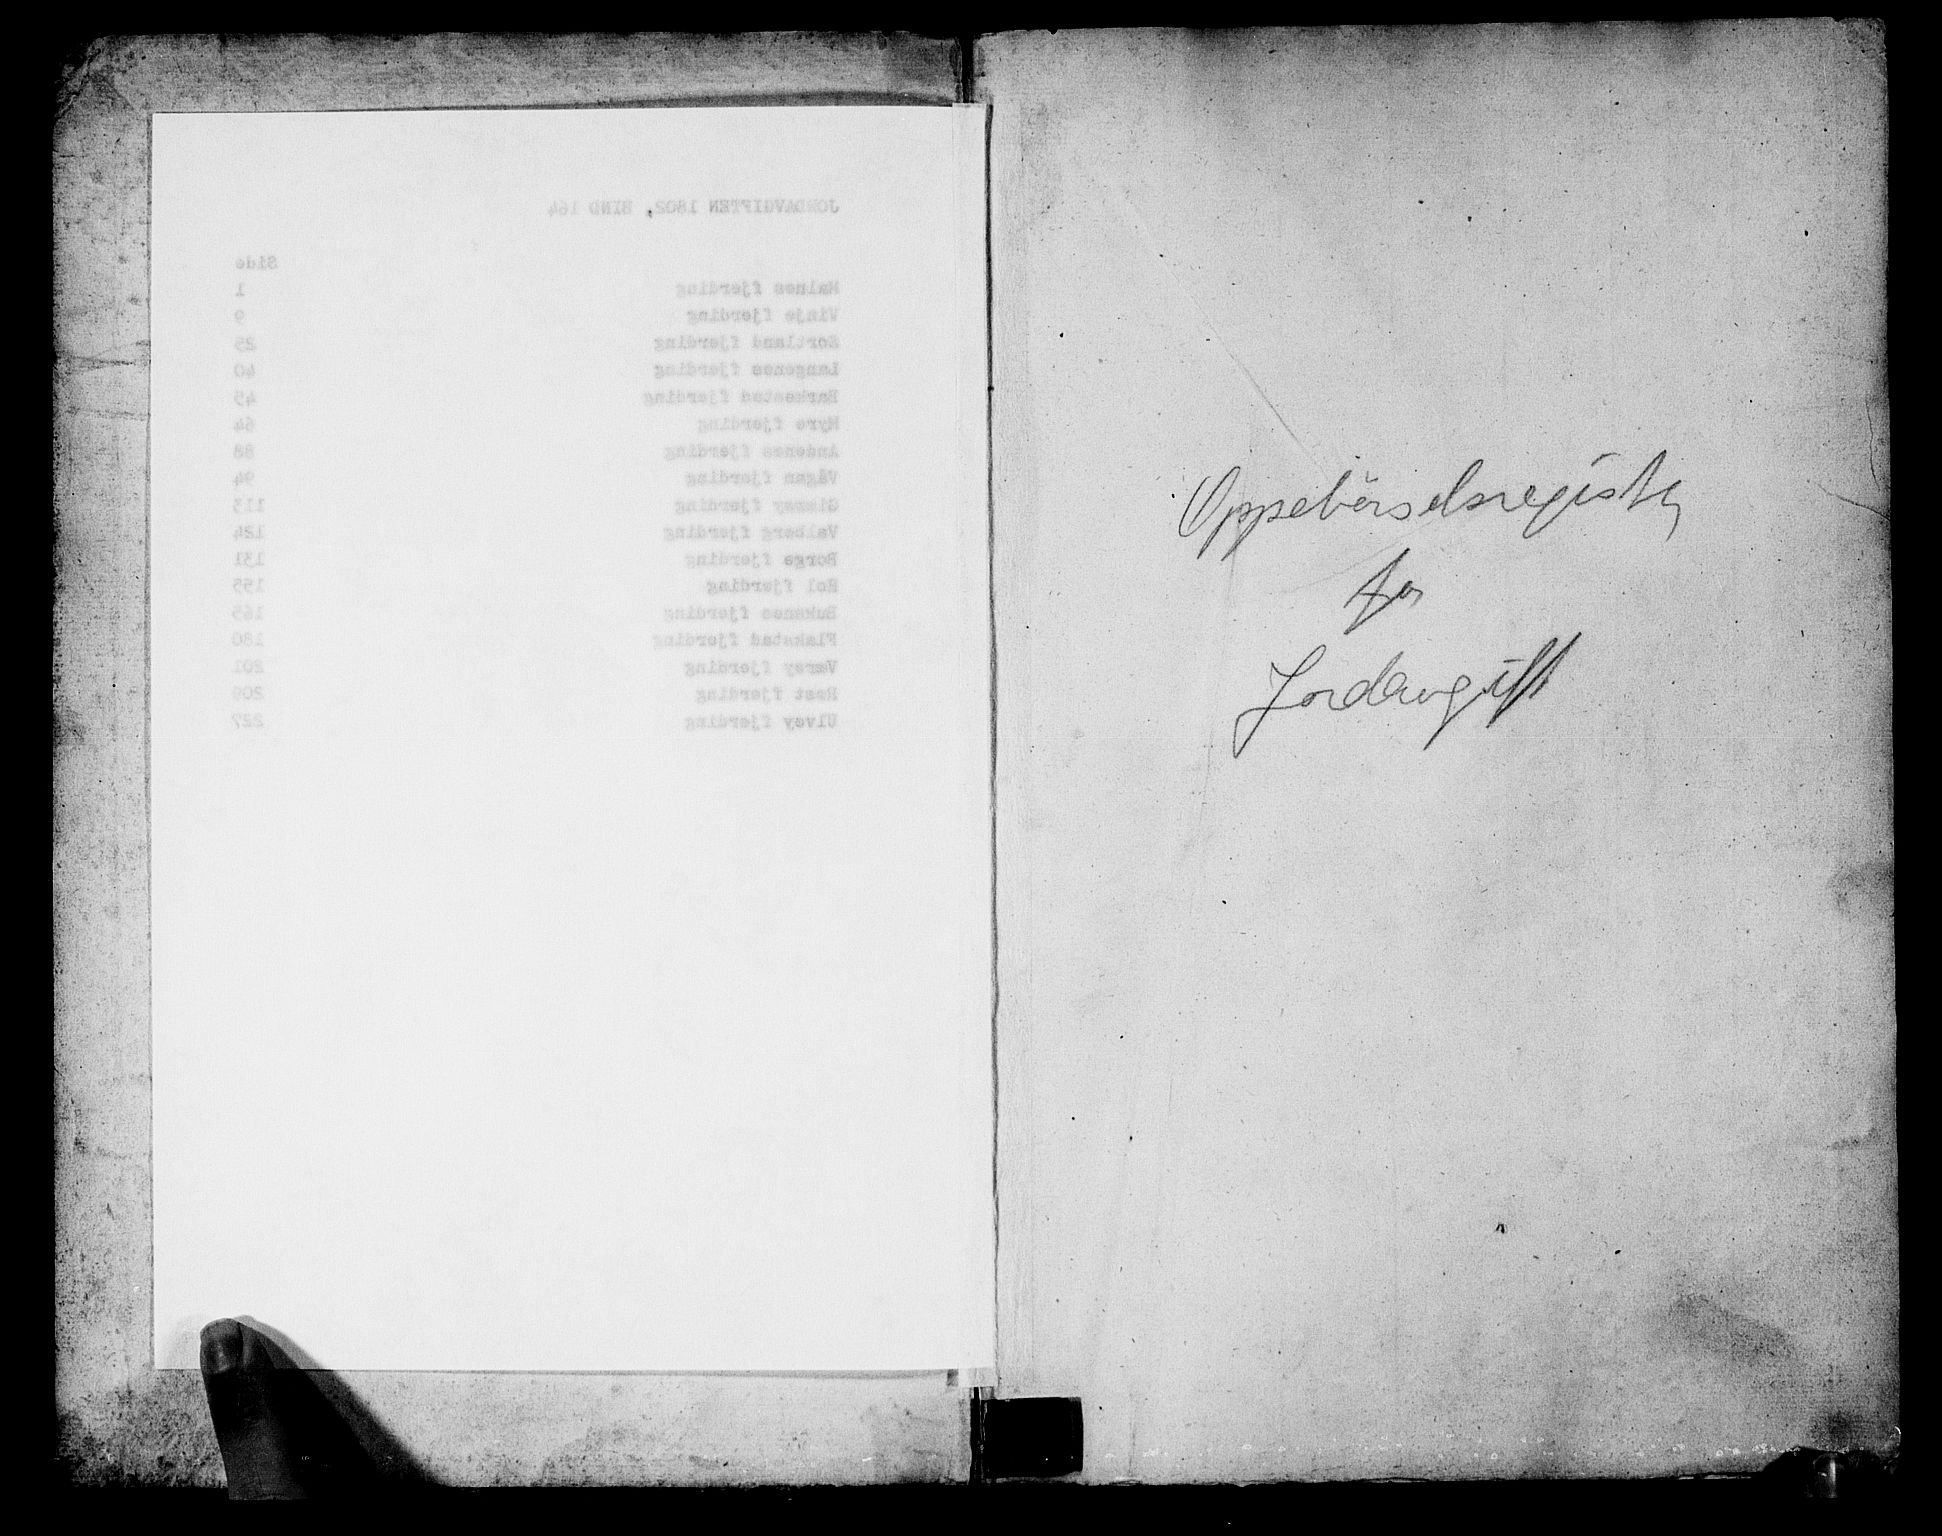 JORDAVGIFTEN 1802, BIND 164
Side
Malnes fjerding 1
Vinje fjerding 9
Sortland fjerding 25
Langenes fjerding 40
Barkestad fjerding 45
Myre fjerding 64
Andenes fjerding 88
Vågan fjerding 94
Gimsøy fjerding 113
Valberg fjerding 124
Borge fjerding 131
Hol fjerding 155
Buksnes fjerding 165
Flakstad fjerding 180
Værøy fjerding 201
Røst fjerding 209
Ulvøy fjerding 227
Oppebörselsregister
for
Jordavgift